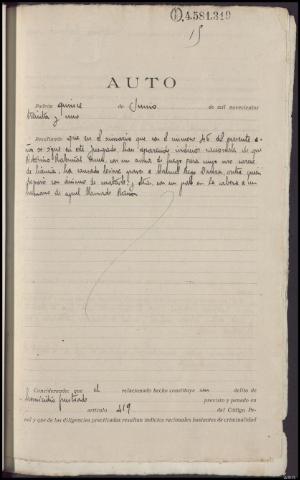 4.581.319
15
AUTO
Padrón quince de Junio de mil novecientos
treinta y uno
Resultando que en el sumario que con el numero 46 del presente a-
ño se sigue en este Juzgado, han aparecido indicios racionales de que
con un arma de fuego para cuyo uso carece
de licencia, ha causado lesiones graves a Manuel contra quien
disparó con ánimo de matarlo, y otra, con un palo en la cabeza a un
hermano de aquel llamado Ramón
Considerando: que el relacionado hecho constituye un delito de
homicidio frustrado previsto y penado en
artículo 419 del Código Pe-
nal y que de las diligencias practicadas resultan indicios racionales bastantes de criminalidad